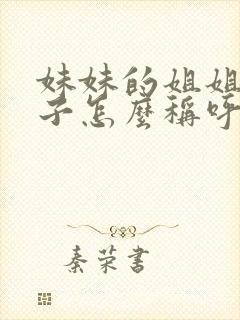 妹妹的姐姐
子怎麼稱呼
秦荣書